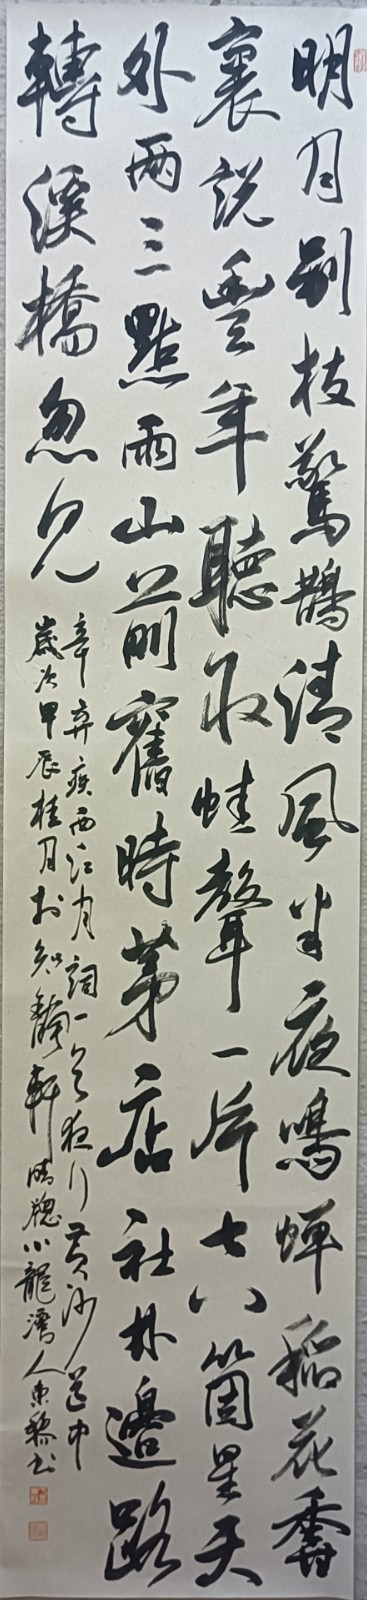 明月別枝驚鵲清風半夜鳴蟬稻花香
裏說豐年聽取蛙聲一片七八箇星天
外兩三點雨山前舊時茅店社林邊路
轉溪橋忽見
辛弃疾西江月詞一首夜行黃沙道中
歲次甲辰桂月於知龢軒晴窗小龍灣人東黎书